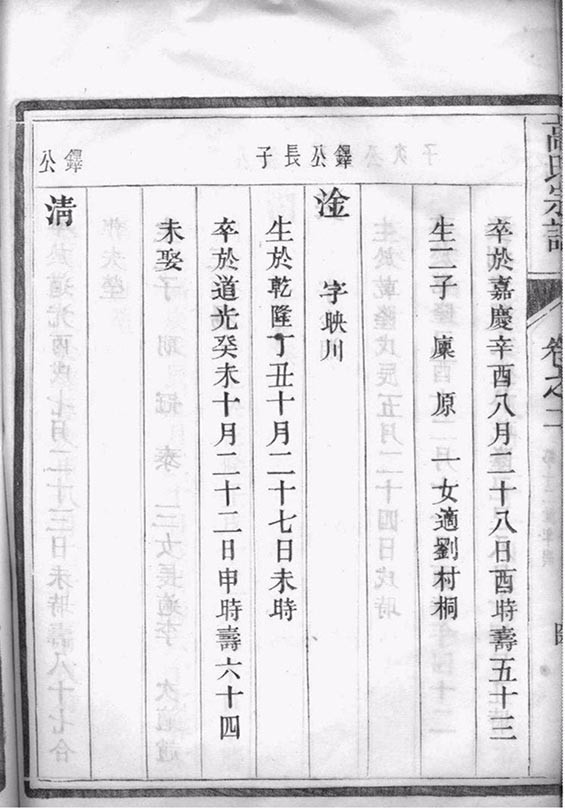 高氏宗譜
卷之二
卒於嘉慶辛酉八月二十八日酉時壽五十三
生二子 廩 原 一女適劉村桐
鐸公長子
淦 字映川
生於乾隆丁丑十月二十七日未時
卒於道光癸未十月二十二日申時壽六十四
未娶
鐸公
清